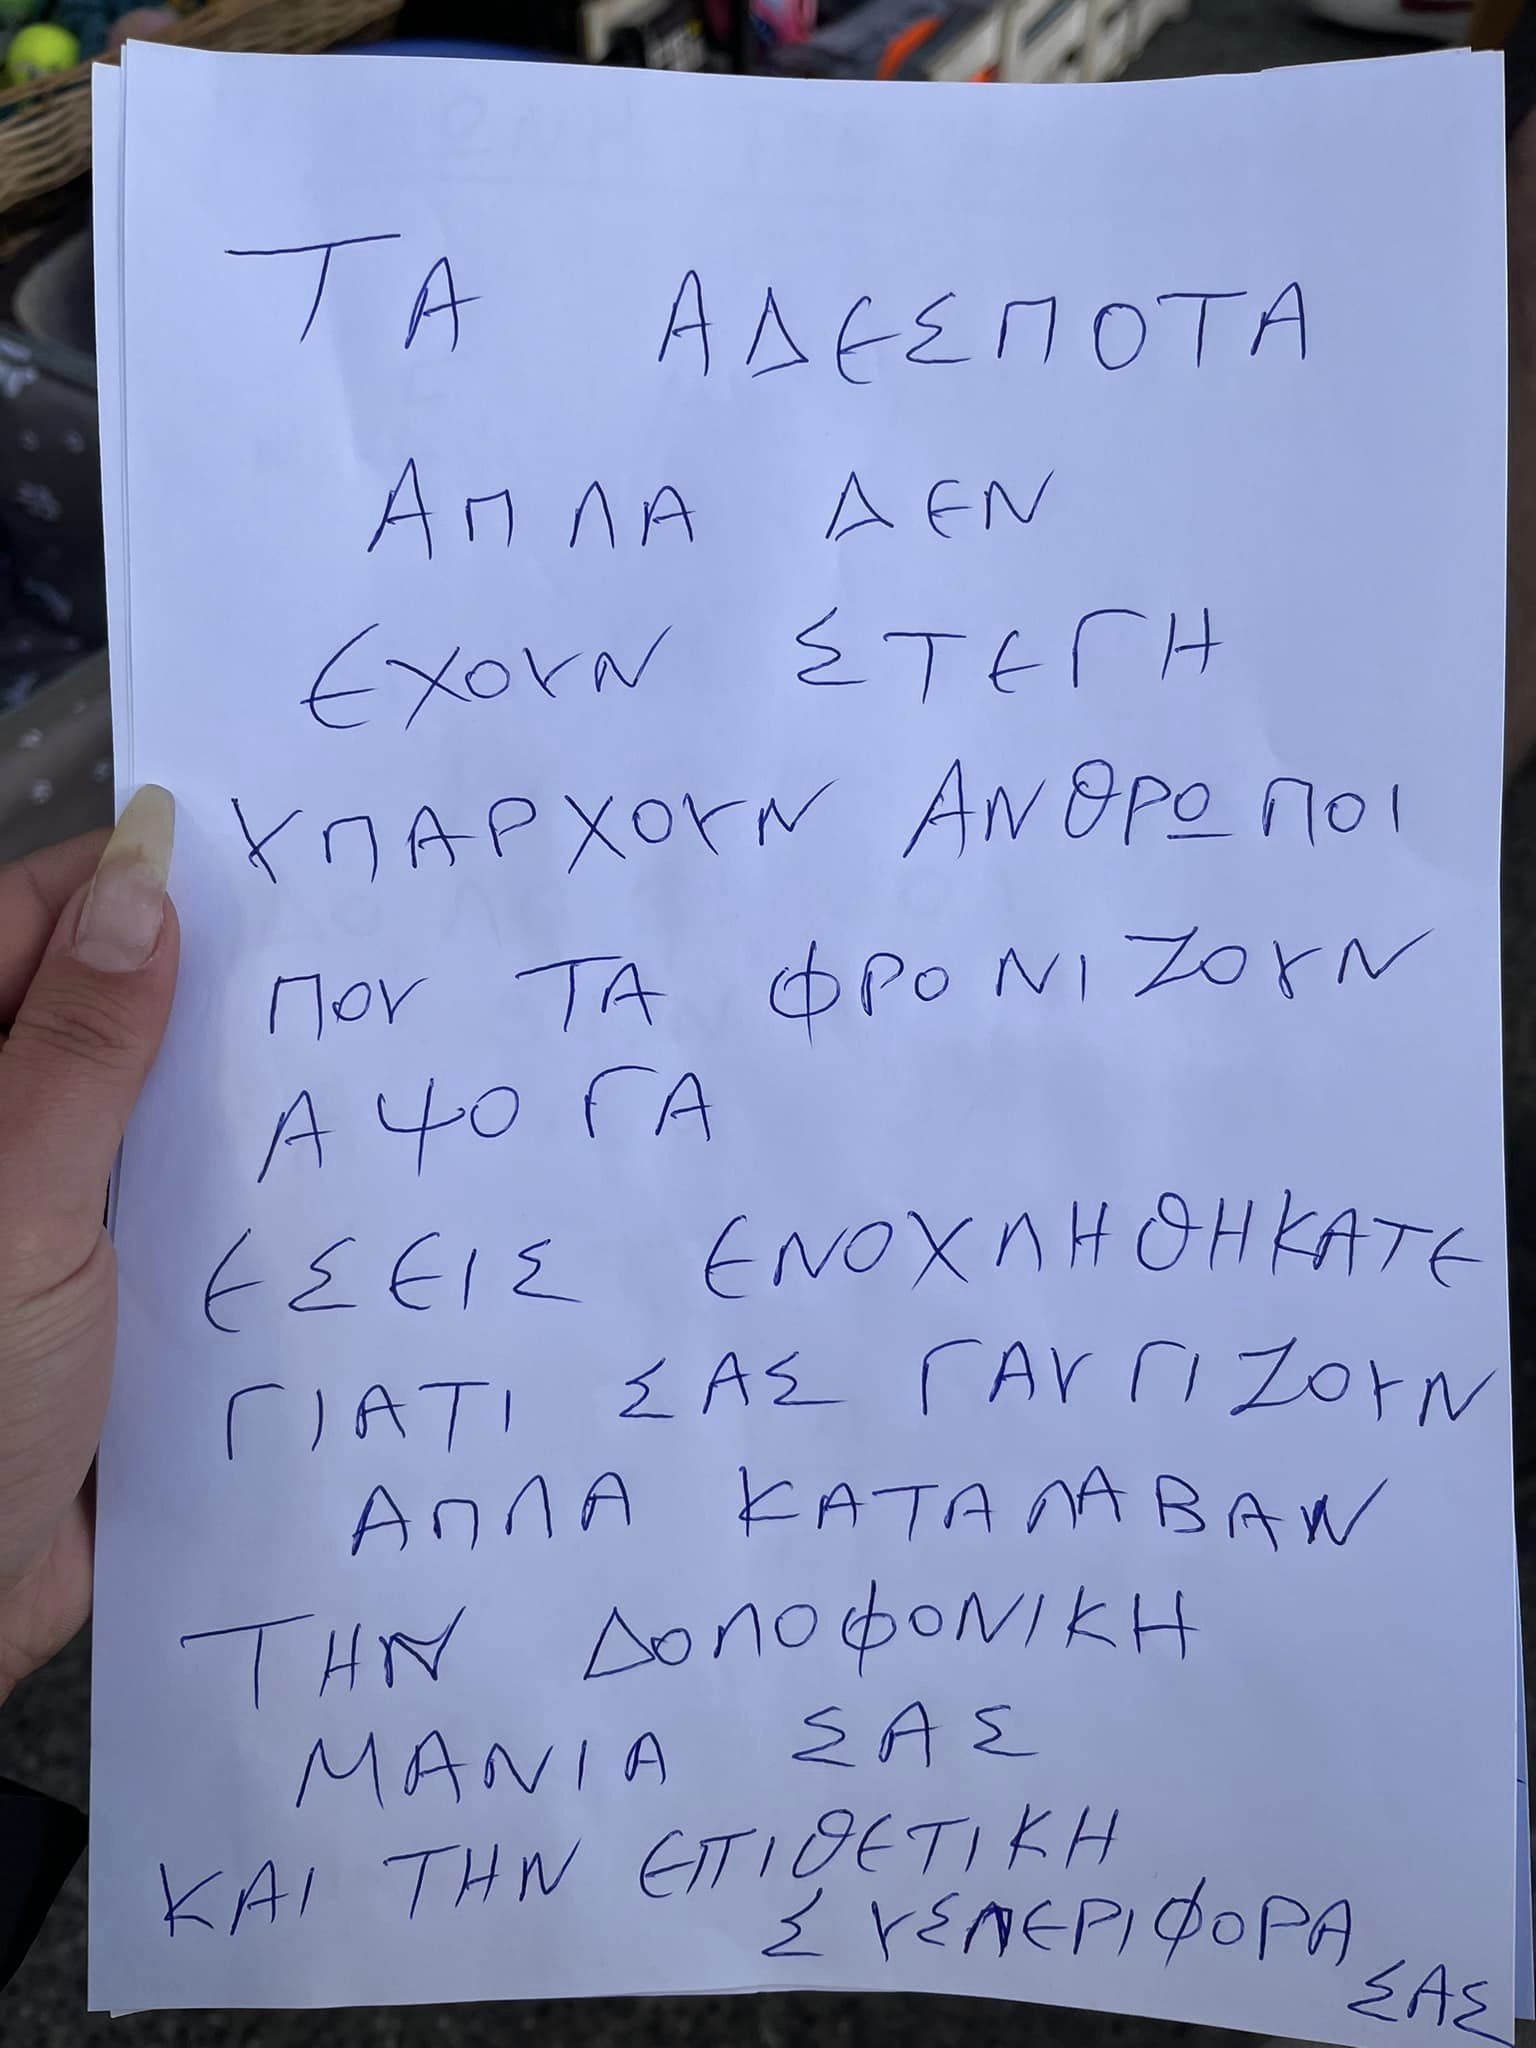 ΤΑ ΑΔΕΣΠΟΤΑ
ΑΠΛΑ ΔΕΝ
ΕΧΟΥΝ ΣΤΕΓΗ
ΥΠΑΡΧΟΥΝ ΑΝΘΡΩΠΟΙ
ΠΟΥ ΤΑ ΦΡΟΝΙΖΟΥΝ
ΑΨΟΓΑ
ΕΣΕΙΣ ΕΝΟΧΛΗΘΗΚΑΤΕ
ΓΙΑΤΙ ΣΑΣ ΓΑΥΓΙΖΟΥΝ
ΑΠΛΑ ΚΑΤΑΛΑΒΑΝ
ΤΗΝ ΔΟΛΟΦΟΝΙΚΗ
ΜΑΝΙΑ ΣΑΣ
ΚΑΙ ΤΗΝ ΕΠΙΘΕΤΙΚΗ
ΣΑΣ